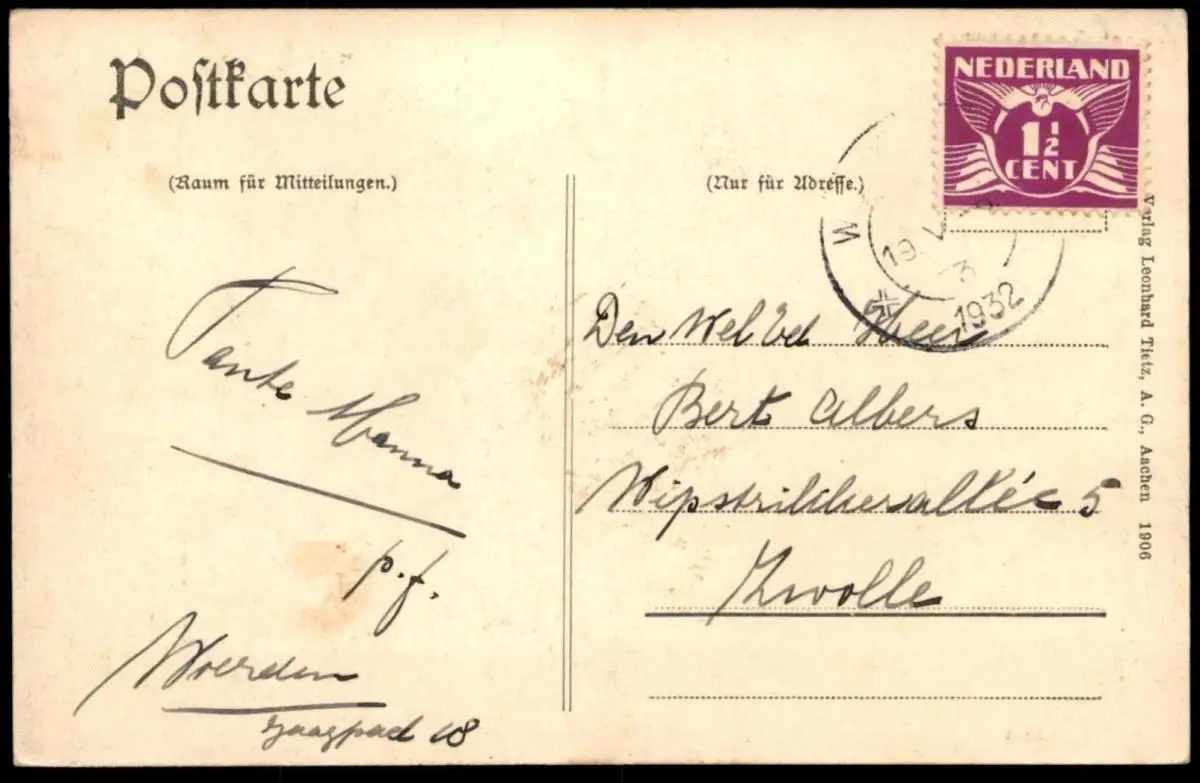 Postkarte
(Raum für Mitteilungen.)
Tante Hanna
p.f.
Woerden
Jaagpad 18
(Nur für Adresse.)
NEDERLAND
1 1/2
CENT
W
19
3
1932
Den Wel Ed Heer
Bert Albers
Wipstrikkerallée 5
Zwolle
Verlag Leonhard Tietz, A. G., Aachen 1906